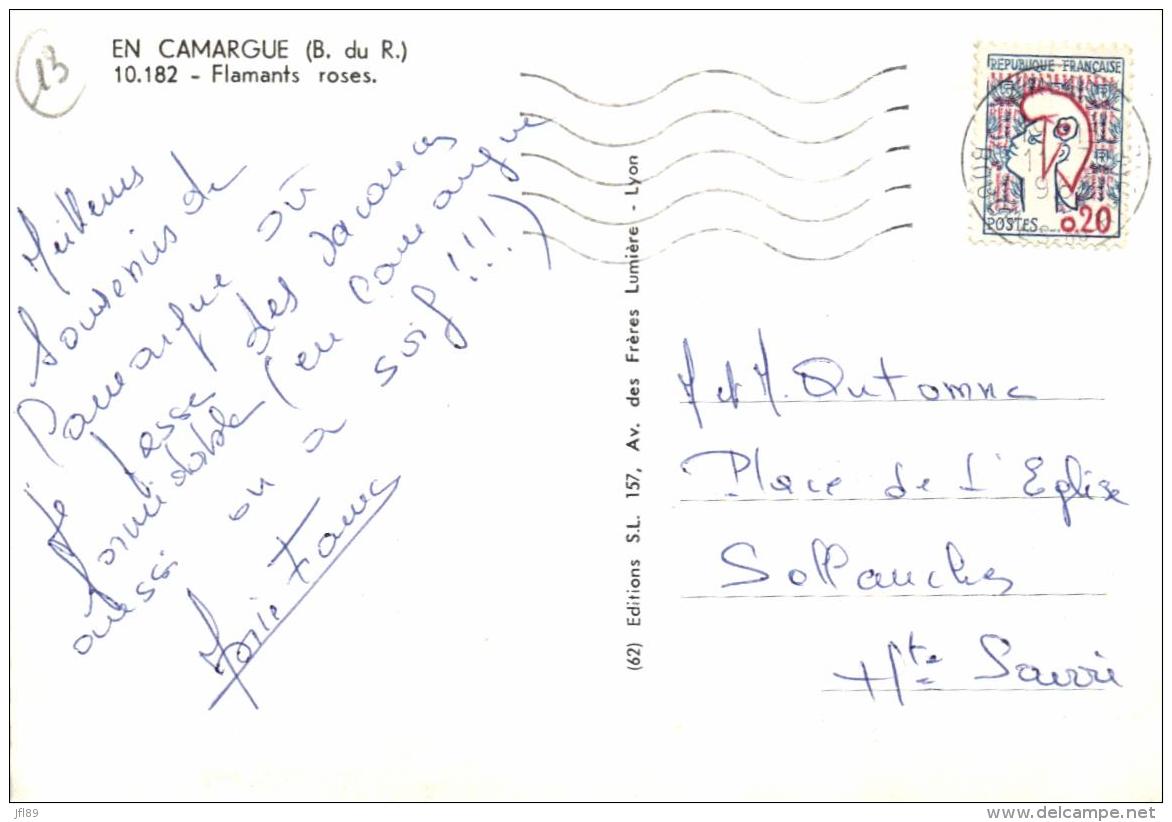 13
EN CAMARGUE (B. du R.)
10.182 - Flamants roses.
Meilleurs
souvenirs de
Camargue où
je passe des vacances
formidables (en camargue
aussi on a soif !!!)
(62) Editions S.L. 157, Av. des Frères Lumière - Lyon
REPUBLIQUE FRANÇAISE
0.20
POSTES
M et M. Automne
Place de L'Eglise
Sallanches
Hte Savoie
jfl89
delcampe.net